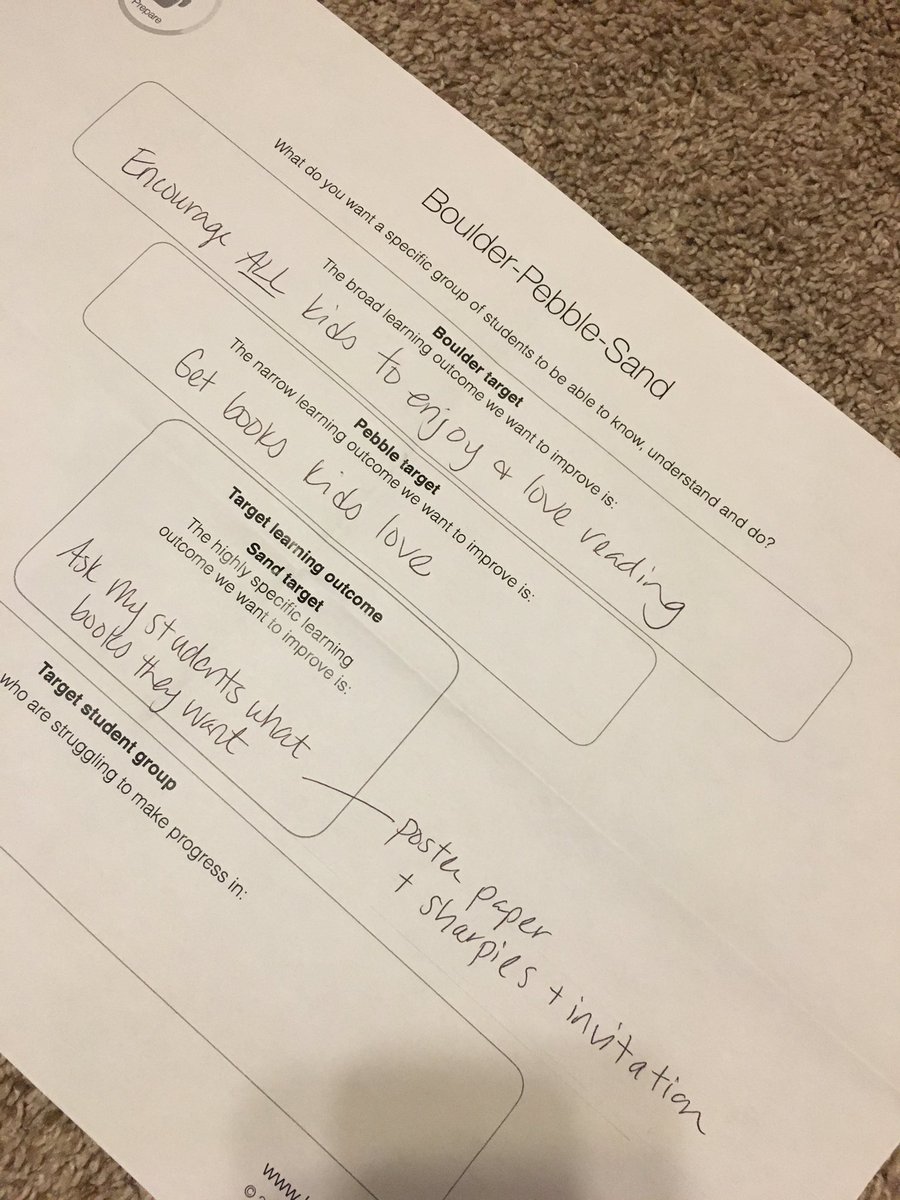 Prepare
Boulder-Pebble-Sand
What do you want a specific group of students to be able to know, understand and do?
Boulder target
The broad learning outcome we want to improve is:
Encourage ALL kids to enjoy & love reading
Pebble target
The narrow learning outcome we want to improve is:
Get books kids love
Target learning outcome
Sand target
The highly specific learning
outcome we want to improve is:
Ask my students what
books they want
poster paper
+ sharpies + invitation
Target student group
who are struggling to make progress in:
www.
©